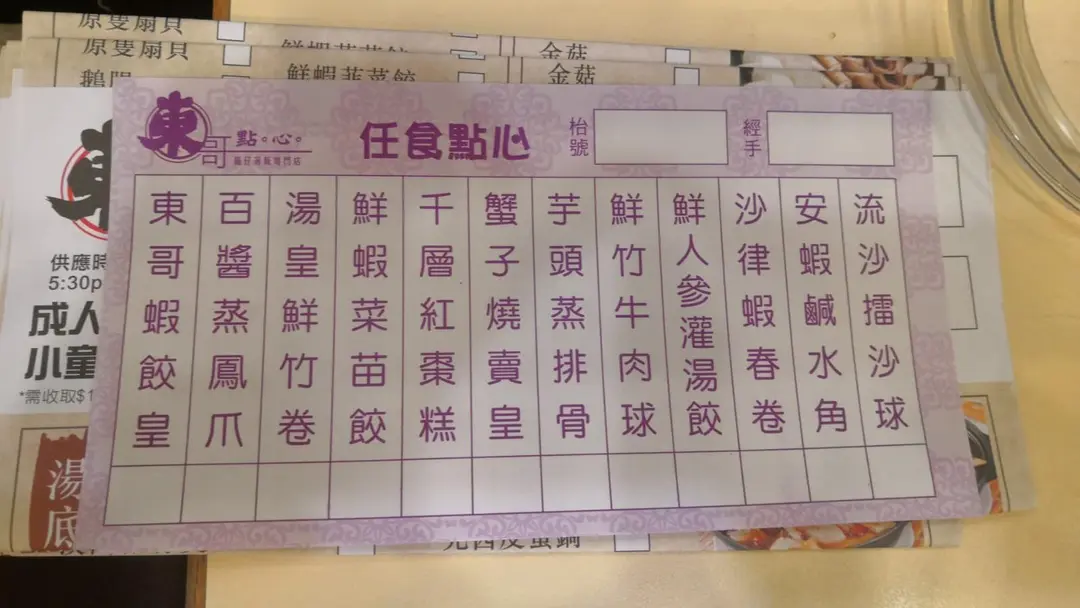 原隻扇貝
原隻扇貝
鮮蝦韮菜餃
金菇
金菇
東哥點。心。
任食點心
枱號
經手
東哥蝦餃皇
百醬蒸鳳爪
湯皇鮮竹卷
鮮蝦菜苗餃
千層紅棗糕
蟹子燒賣皇
芋頭蒸排骨
鮮竹牛肉球
鮮人參灌湯餃
沙律蝦春卷
安蝦鹹水角
流沙擂沙球
供應時
5:30p
成人
小童
*需收取$1
湯底